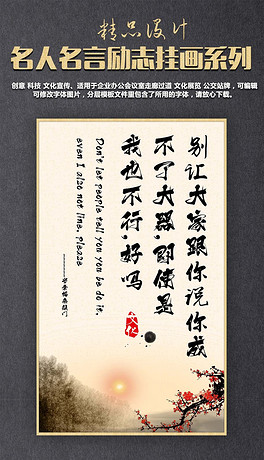 精品设计
名人名言励志挂画系列
创意 科技 文化宣传、适用于企业办公会议室走廊过道 文化展览 公交站牌，可编辑
可修改字体图片，分层模板文件里包含了所用的字体，请放心下载。
别让大家跟你说你成
不了大器,即使是
我也不行,好吗
Don't let people tell you you be do it.
even I also not line, please
文化